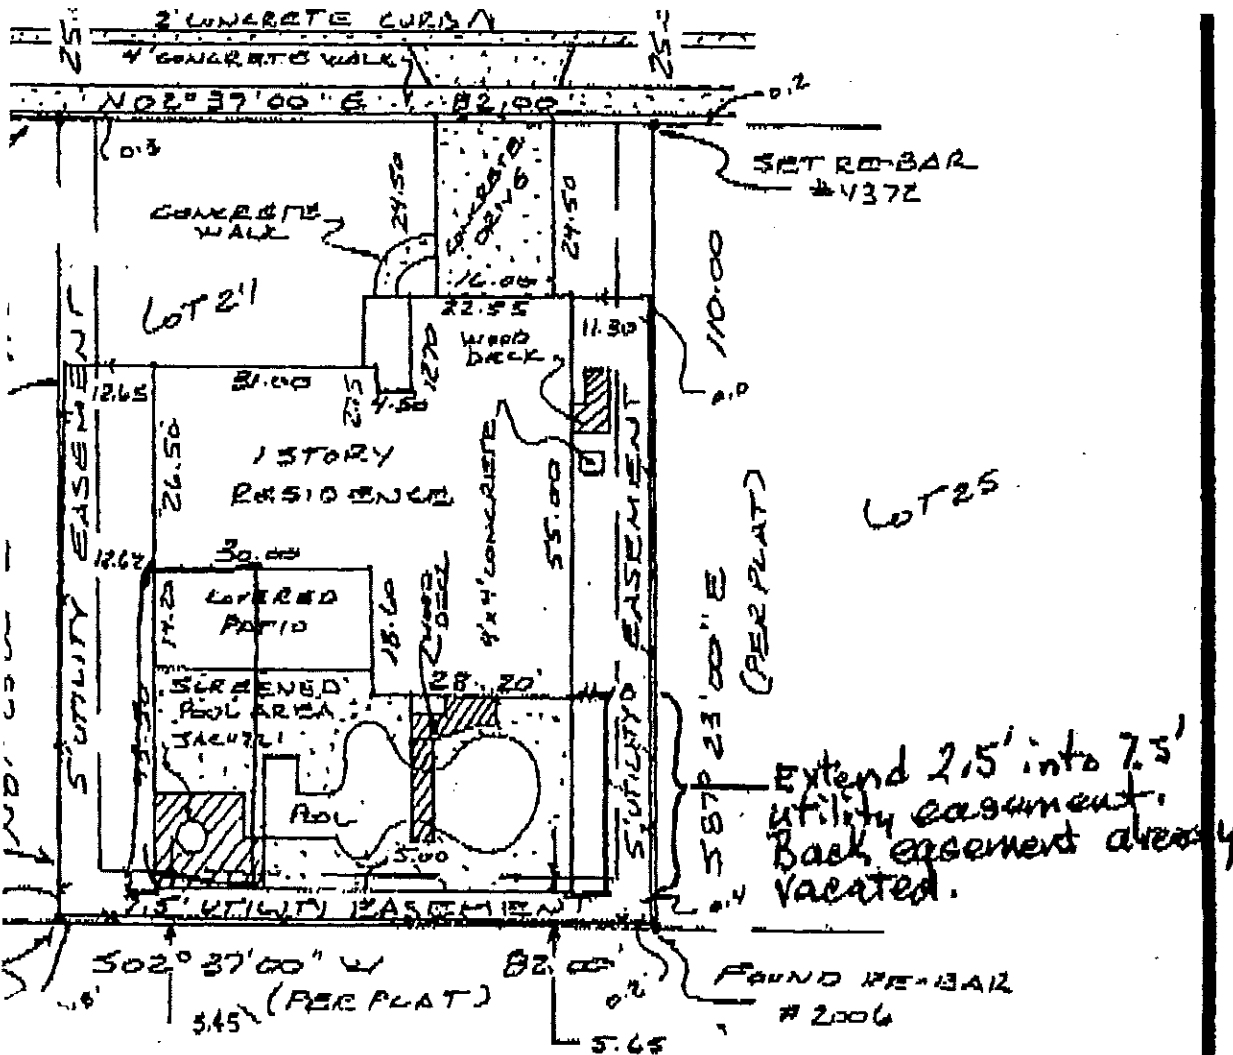 25.
2' CONCRETE CURB
25.
4' CONCRETE WALK
N02°37'00"E 82.00
0.2
0.3
SET RE-BAR
#4372
CONCRETE
WALK
24.50
CONCRETE
DRIVE
24.50
16.00
110.00
LOT 24
22.55
11.30
WOOD
DECK
12.70
12.65
31.00
2.15
4.50
0.0
1 STORY
RESIDENCE
26.50
4'x4' CONCRETE
55.00
5' UTILITY EASEMENT
LOT 25
12.62
30.00
COVERED
PATIO
14.20
18.60
WOOD
DECK
5' UTILITY EASEMENT
S87°23'00"E
(PER PLAT)
28.20
SCREENED
POOL AREA
JACUZZI
POOL
5.00
Extend 2.5' into 7.5'
utility easement.
Back easement already
vacated.
0.4
7.5' UTILITY EASEMENT
S02°37'00"W 82.00'
(PER PLAT)
0.2
FOUND RE-BAR
#2006
5.45
5.65